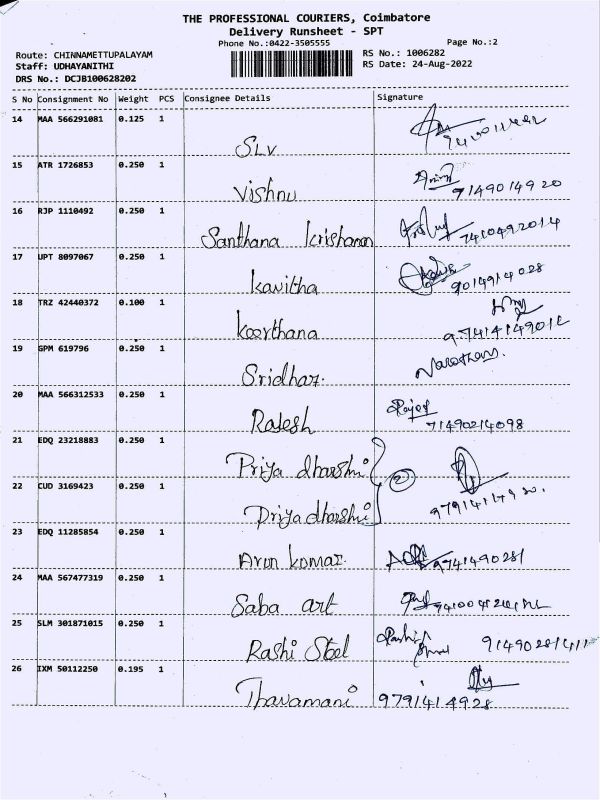 THE PROFESSIONAL COURIERS, Coimbatore
Delivery Runsheet - SPT
Phone No.:0422-3505555 Page No.:2
Route: CHINNAMETTUPALAYAM RS No.: 1006282
Staff: UDHAYANITHI RS Date: 24-Aug-2022
DRS No.: DCJB100628202
S No Consignment No Weight PCS Consignee Details Signature
14 MAA 566291081 0.125 1
SLV
15 ATR 1726853 0.250 1
Vishnu 7149014920
16 RJP 1110492 0.250 1
Santhana Krishanan 7410492014
17 UPT 8097067 0.250 1
Kavitha 9014914028
18 TRZ 42440372 0.100 1
Keerthana
19 GPM 619796 0.250 1
Sridhar.
20 MAA 566312533 0.250 1
Rajesh 71490214098
21 EDQ 23218883 0.250 1
Priya dharshni 2
22 CUD 3169423 0.250 1
Priya dharshni
23 EDQ 11285854 0.250 1
Arun kumar. 9741490281
24 MAA 567477319 0.250 1
Saba art
25 SLM 301871015 0.250 1
Rashi Steel
26 IXM 50112250 0.195 1
Thavamani 9791414928